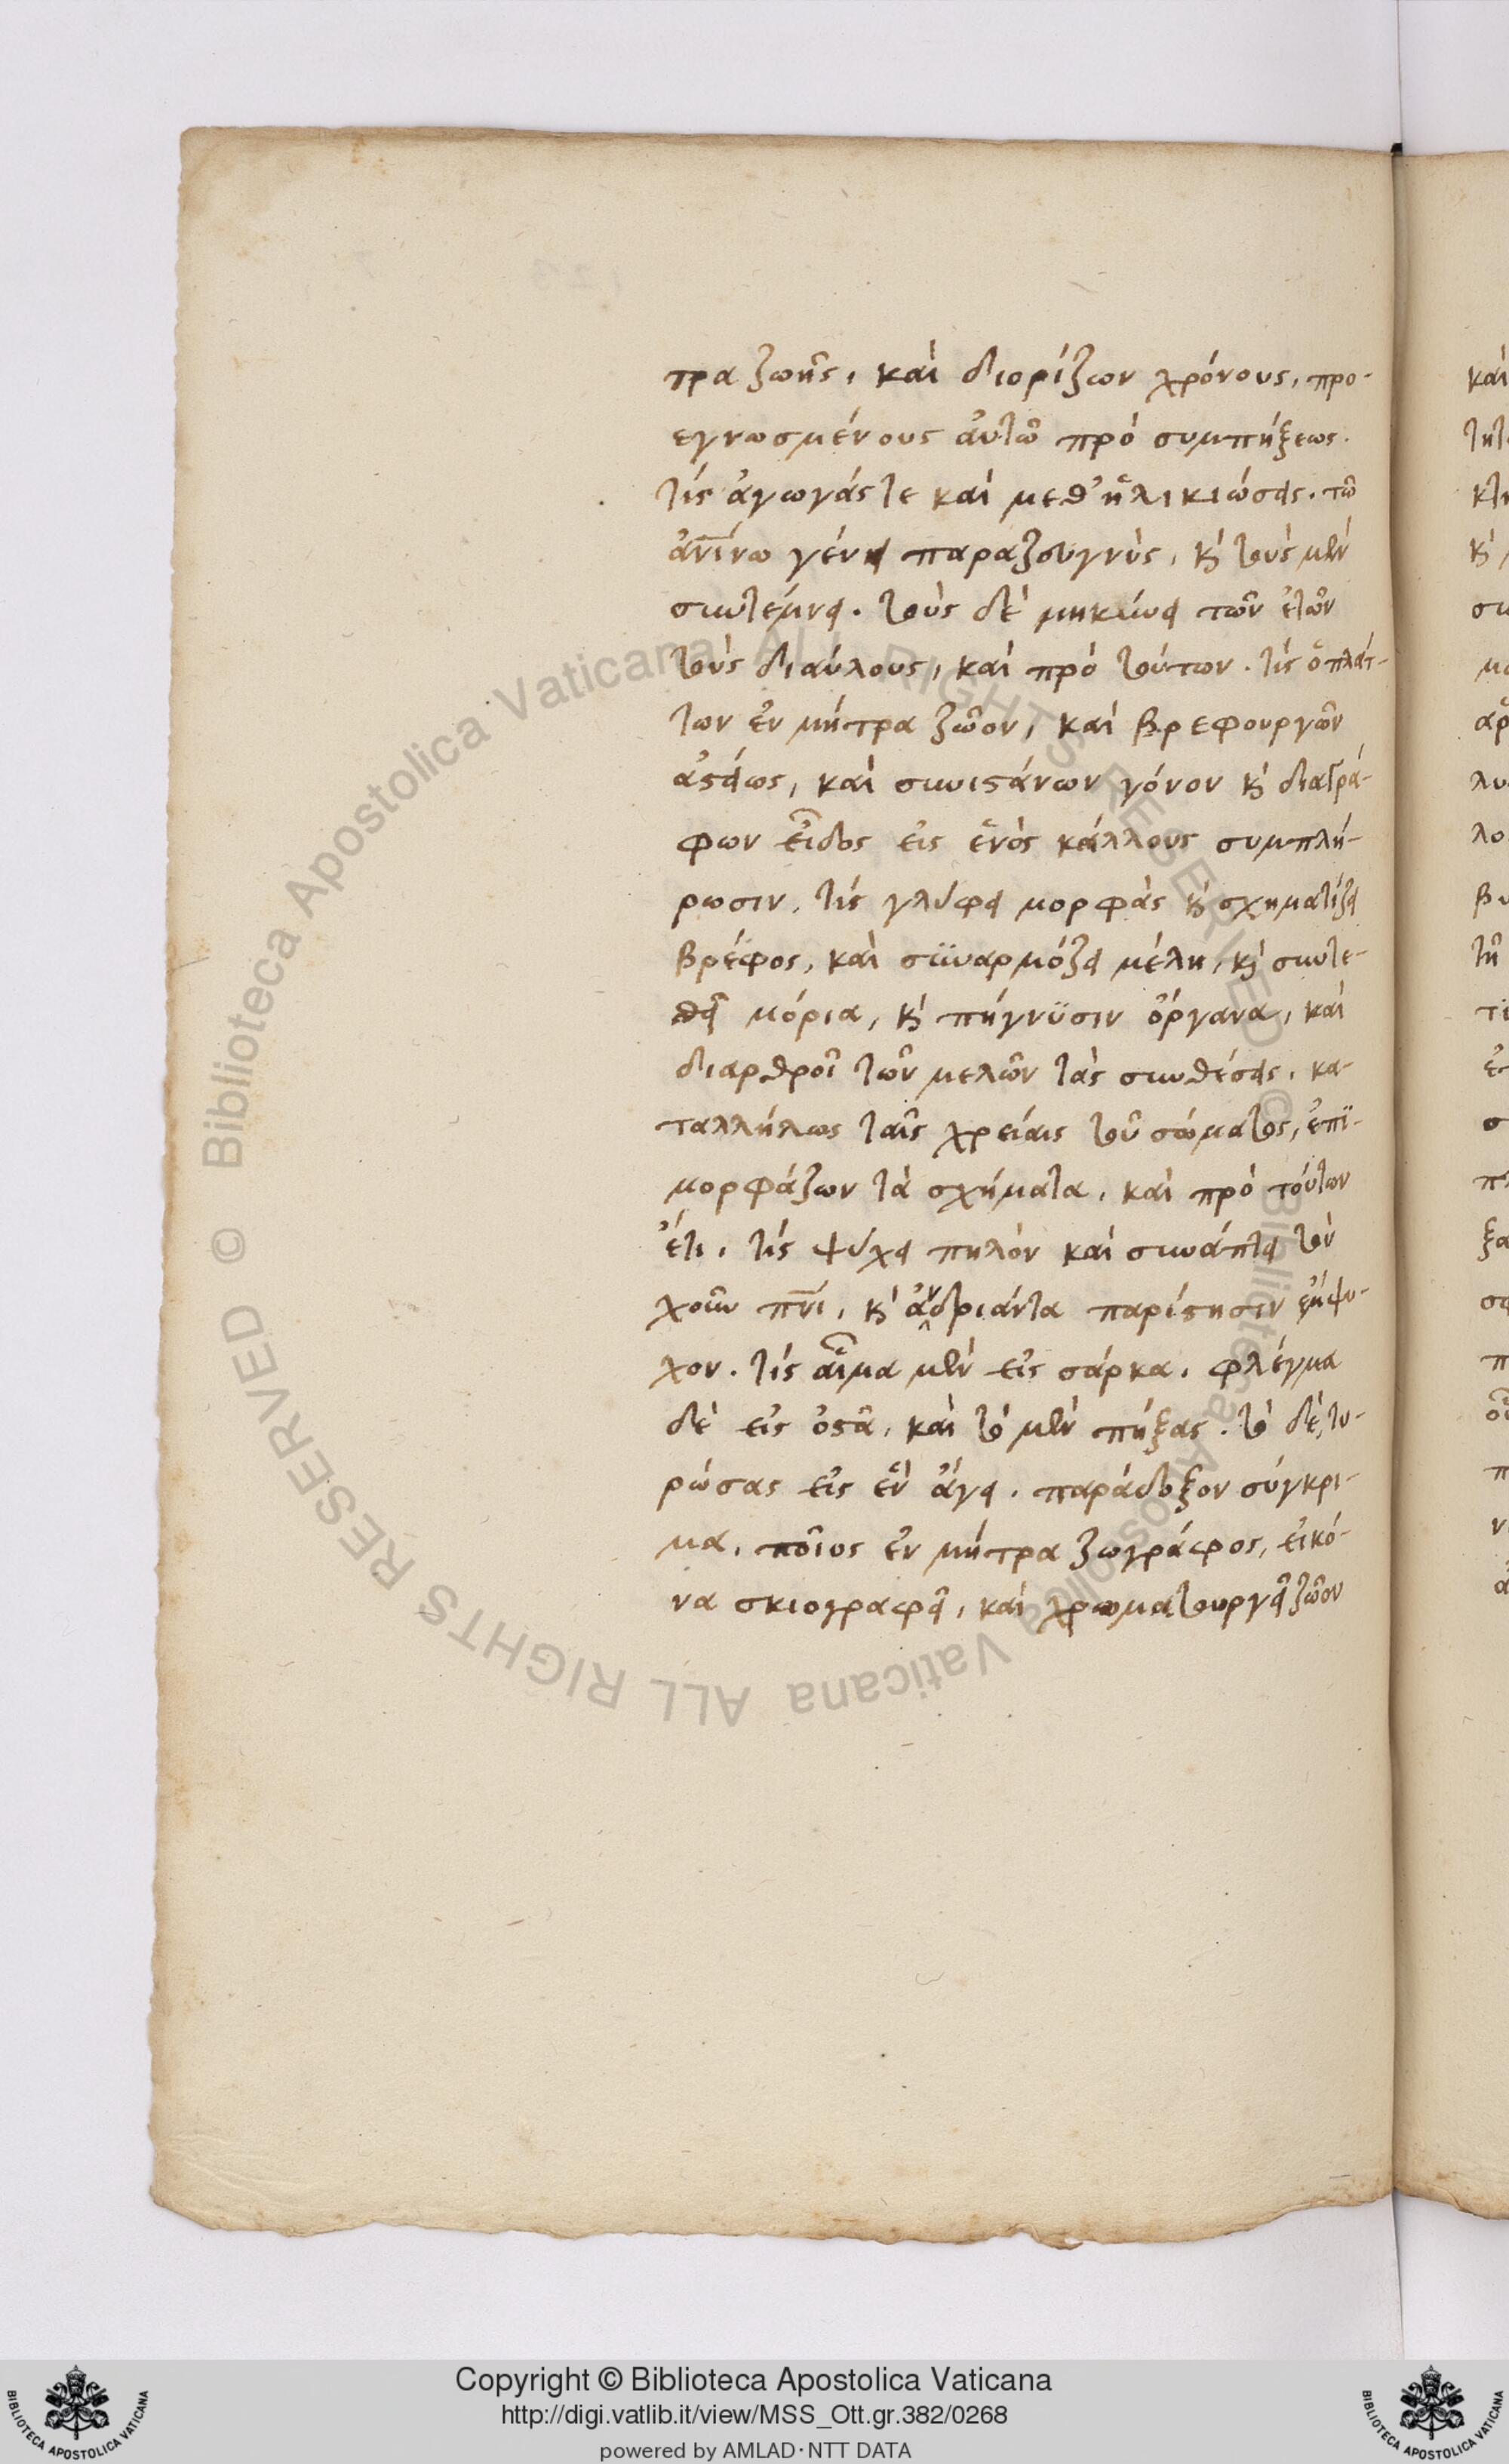 τρα ζωῆς, καὶ διορίζων χρόνους, προ-
εγνωσμένους ἀυτῶ πρὸ συμπήξεως.
τίς ἀγωγάς τε καὶ μεθἡλικιώσεις. τῶ
ἀνίνω γένει παραζευγνὺς, κ τοὺς μὲν
συντέμνει. τοὺς δὲ μηκύνει τῶν ἐτῶν
τοὺς διαύλους, καὶ πρὸ τούτων. τίς ὁ πλάτ-
των ἐν μήτρα ζῶον, καὶ βρεφουργῶν
ἀστείως, καὶ συνιστάνων γόνον κ διαγρά-
φων εἶδος εἰς ἑνὸς κάλλους συμπλή-
ρωσιν, τίς γλύφει μορφὰς κ σχηματίζει
βρέφος, καὶ συναρμόζει μέλη, κ συντε-
θεῖ μόρια, κ πήγνϋσιν ὄργανα, καὶ
διαρθροῖ τῶν μελῶν τὰς συνθέσεις, κα-
ταλλήλως ταῖς χρείαις τοῦ σώματος, ἐπϊ-
μορφάζων τὰ σχήματα, καὶ πρὸ τούτων
ἔτι, τίς ψύχει πηλὸν καὶ συνάπτει τὸν
χοῦν πνι, κ ἀνδριάντα παρίστησιν ἔμψυ-
χον. τίς αἷμα μὲν εἰς σάρκα, φλέγμα
δὲ εἰς ὀστᾶ, καὶ τὸ μὲν πήξας. τὸ δὲ, τυ-
ρώσας εἰς ἓν ἄγει. παράδοξον σύγκρι-
μα, ποῖος ἐν μήτρα ζωγράφος, εἰκό-
να σκιογραφεῖ, καὶ χρωματουργεῖ ζῶον
Copyright © Biblioteca Apostolica Vaticana
http://digi.vatlib.it/view/MSS_Ott.gr.382/0268
powered by AMLAD·NTT DATA